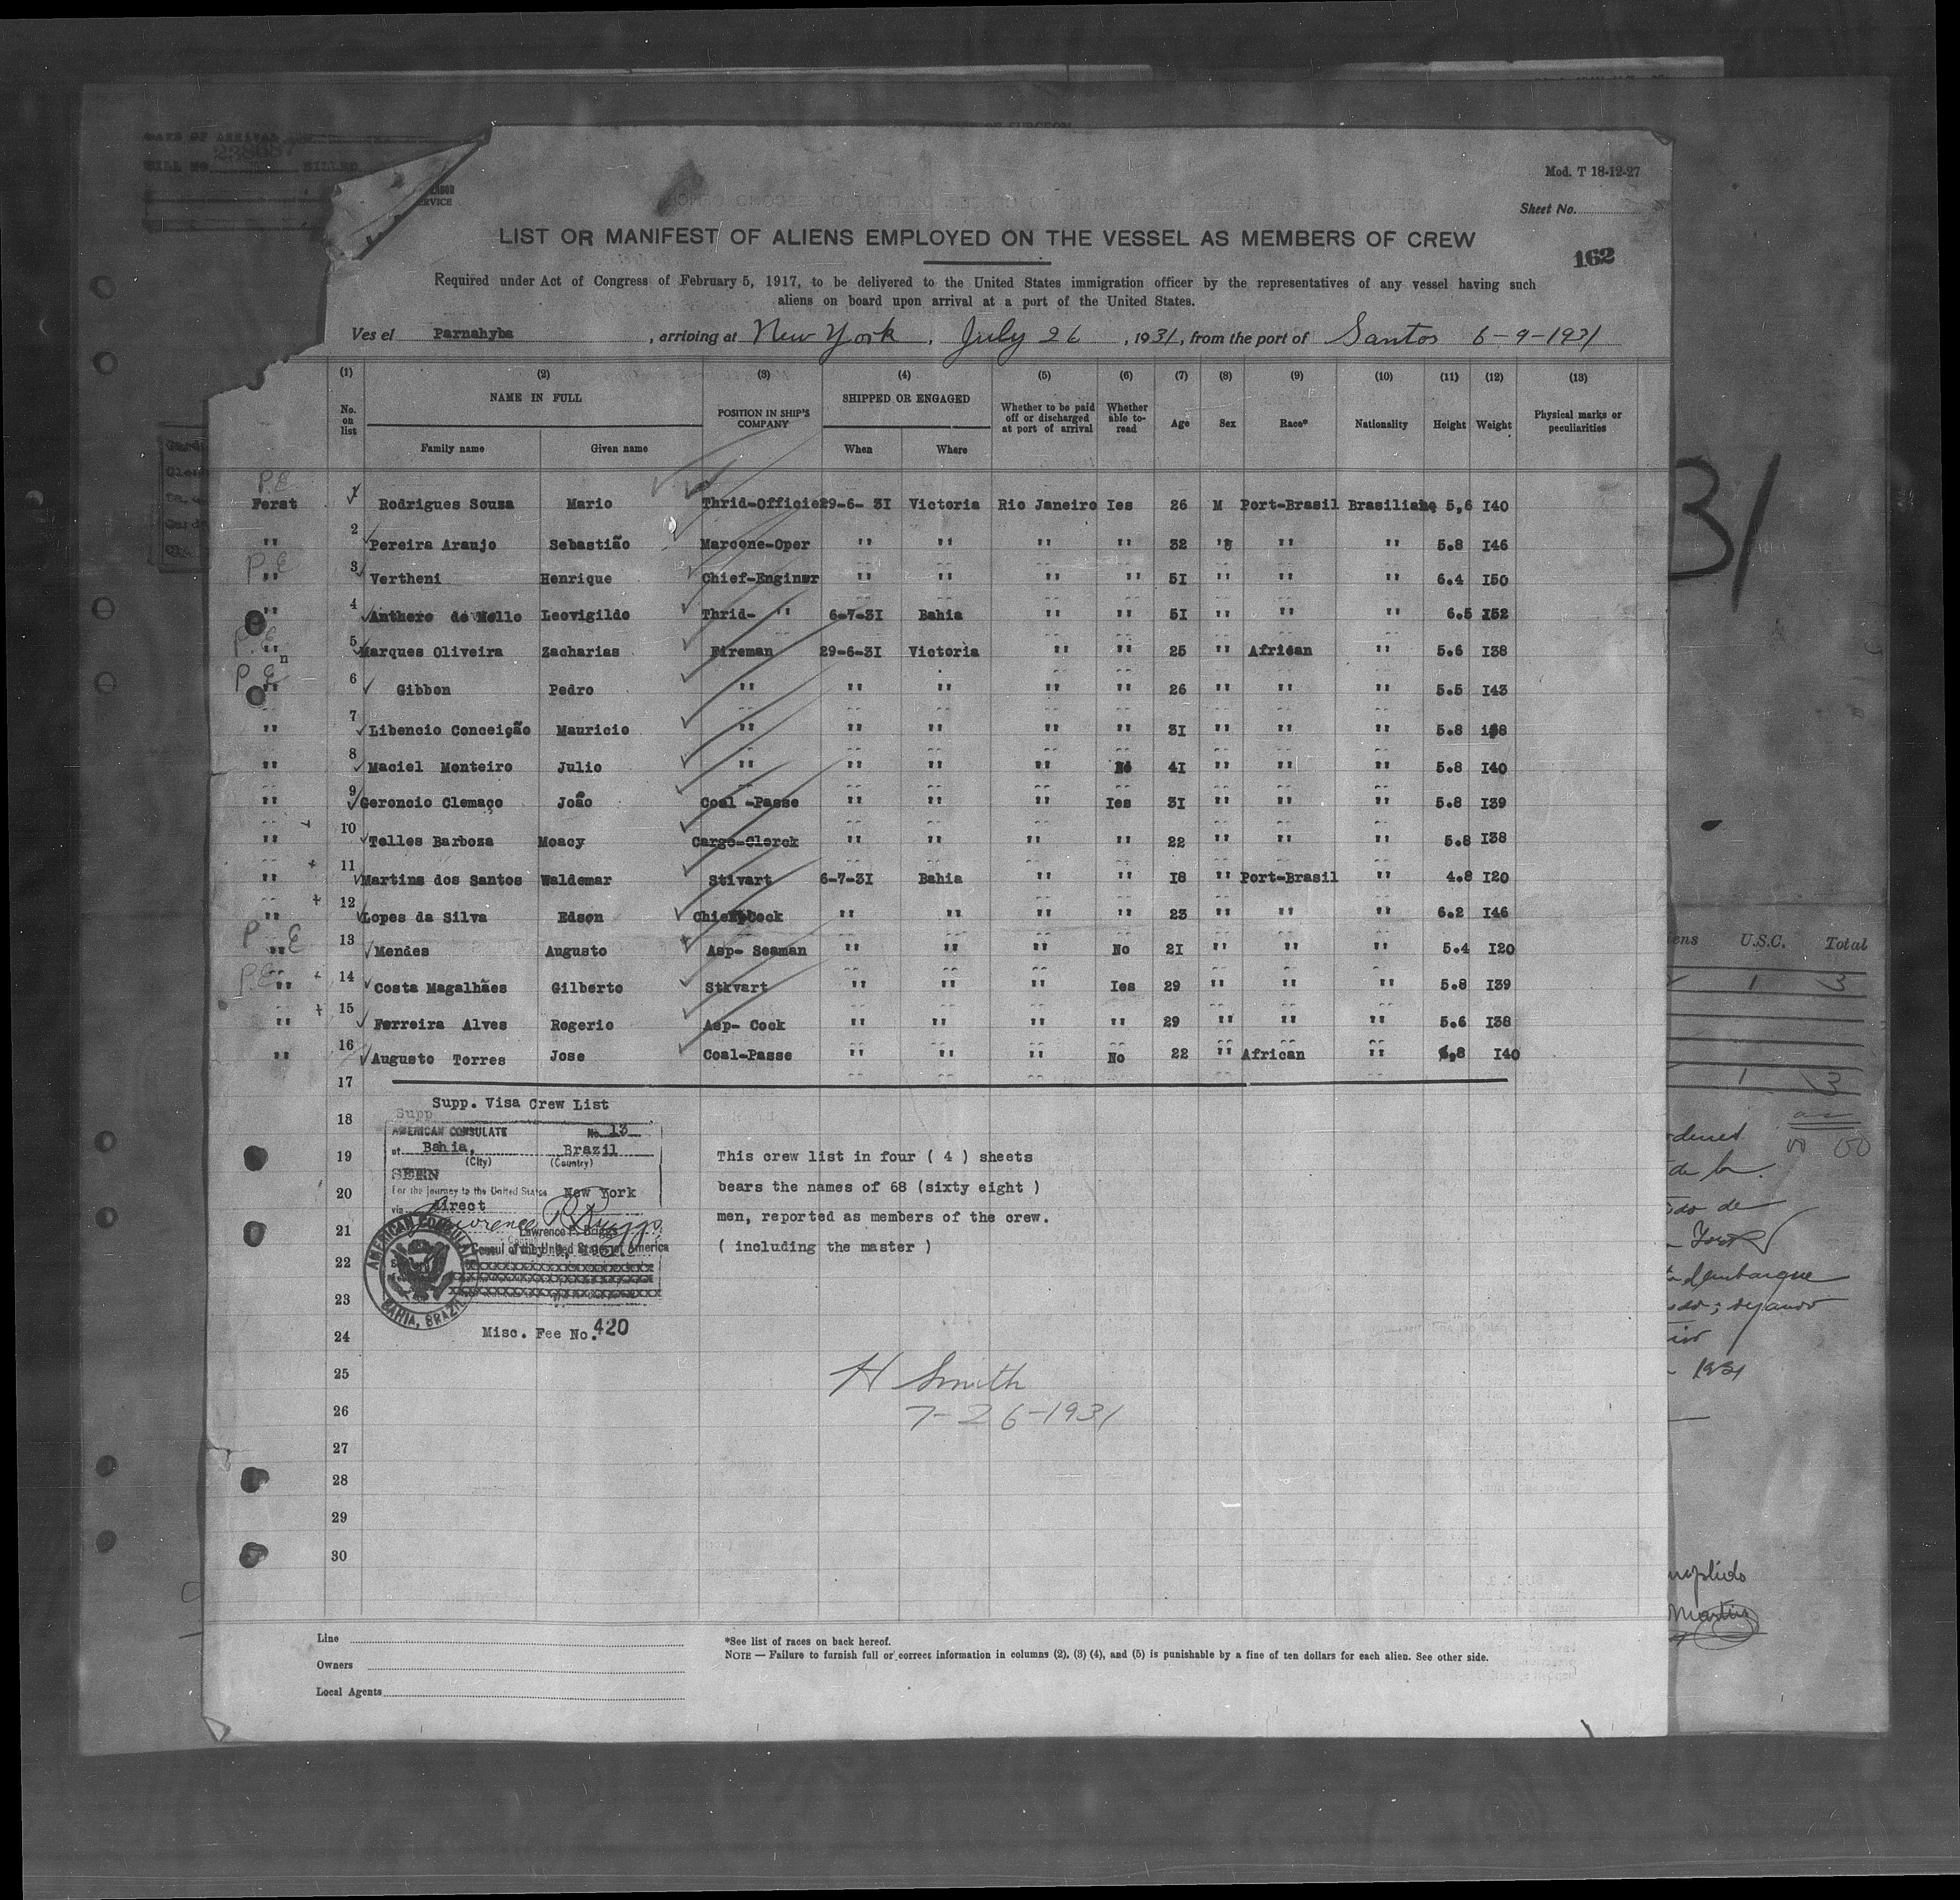 DATE OF ARRIVAL
BILL No. 228687 BILLED
Mod. T 18-12-27
Sheet No.
162
LIST OR MANIFEST OF ALIENS EMPLOYED ON THE VESSEL AS MEMBERS OF CREW
Required under Act of Congress of February 5, 1917, to be delivered to the United States immigration officer by the representatives of any vessel having such
aliens on board upon arrival at a port of the United States.
Ves el Parnahyba , arriving at New York , July 26 , 1931, from the port of Santos 6-9-1931
(1) (2) (3) (4) (5) (6) (7) (8) (9) (10) (11) (12) (13)
No. on list NAME IN FULL Family name Given name POSITION IN SHIP'S COMPANY SHIPPED OR ENGAGED When Where Whether to be paid off or discharged at port of arrival Whether able to read Age Sex Race* Nationality Height Weight Physical marks or peculiarities
P.E
Ferst 1 Rodrigues Souza Mario Thrid-Officie 29-6- 31 Victoria Rio Janeiro Ies 26 M Port-Brasil Brasiliane 5,6 I40
" 2 Pereira Araujo Sebastião Marcone-Oper " " " " 32 " " " 5.8 I46
P.E " 3 Vertheni Henrique Chief-Enginer " " " " 5I " " " 6.4 I50
" 4 Anthero de Mello Leovigildo Thrid- " 6-7-3I Bahia " " 5I " " " 6.5 I52
P.E " 5 Marques Oliveira Zacharias Fireman 29-6-3I Victoria " " 25 " African " 5.6 I38
P.E " 6 Gibbon Pedro " " " " " 26 " " " 5.5 I43
" 7 Libencio Conceição Mauricio " " " " " 3I " " " 5.8
" 8 Maciel Monteiro Julio " " " " No 4I " " " 5.8 I40
" 9 Geroncio Clemaço João Coal -Passe " " " Ies 3I " " " 5.8 I39
" 10 Telles Barboza Moacy Cargo-Clerck " " " " 22 " " " 5.8 I38
" + 11 Martins dos Santos Waldemar Stivart 6-7-3I Bahia " " I8 " Port-Brasil " 4.8 I20
" + 12 Lopes da Silva Edson Chief Cock " " " " 23 " " " 6.2 I46
P.E " 13 Mendes Augusto Asp- Seaman " " " No 2I " " " 5.4 I20
P.E " + 14 Costa Magalhães Gilberto Stkvart " " " Ies 29 " " " 5.8 I39
" + 15 Ferreira Alves Rogerio Asp- Cock " " " " 29 " " " 5.6 I38
" 16 Augusto Torres Jose Coal-Passe " " " No 22 " African " 6,8 I40
17
Supp. Visa Crew List
18
Supp
AMERICAN CONSULATE No. 13
19
at Bahia, Brazil
(City) (Country)
SEEN
20
For the journey to the United States New York
via direct
Lawrence P. Briggs
21
Lawrence P. Briggs
Consul of the United States of America
22
AMERICAN CONSULATE
BAHIA, BRAZIL
23
Misc. Fee No. 420
24
This crew list in four ( 4 ) sheets
bears the names of 68 (sixty eight )
men, reported as members of the crew.
( including the master )
25
H Smith
26
7-26-1931
27
28
29
30
Line
Owners
Local Agents
*See list of races on back hereof.
NOTE — Failure to furnish full or correct information in columns (2), (3) (4), and (5) is punishable by a fine of ten dollars for each alien. See other side.
31
U.S.C. Total
1 3
1 3
1931